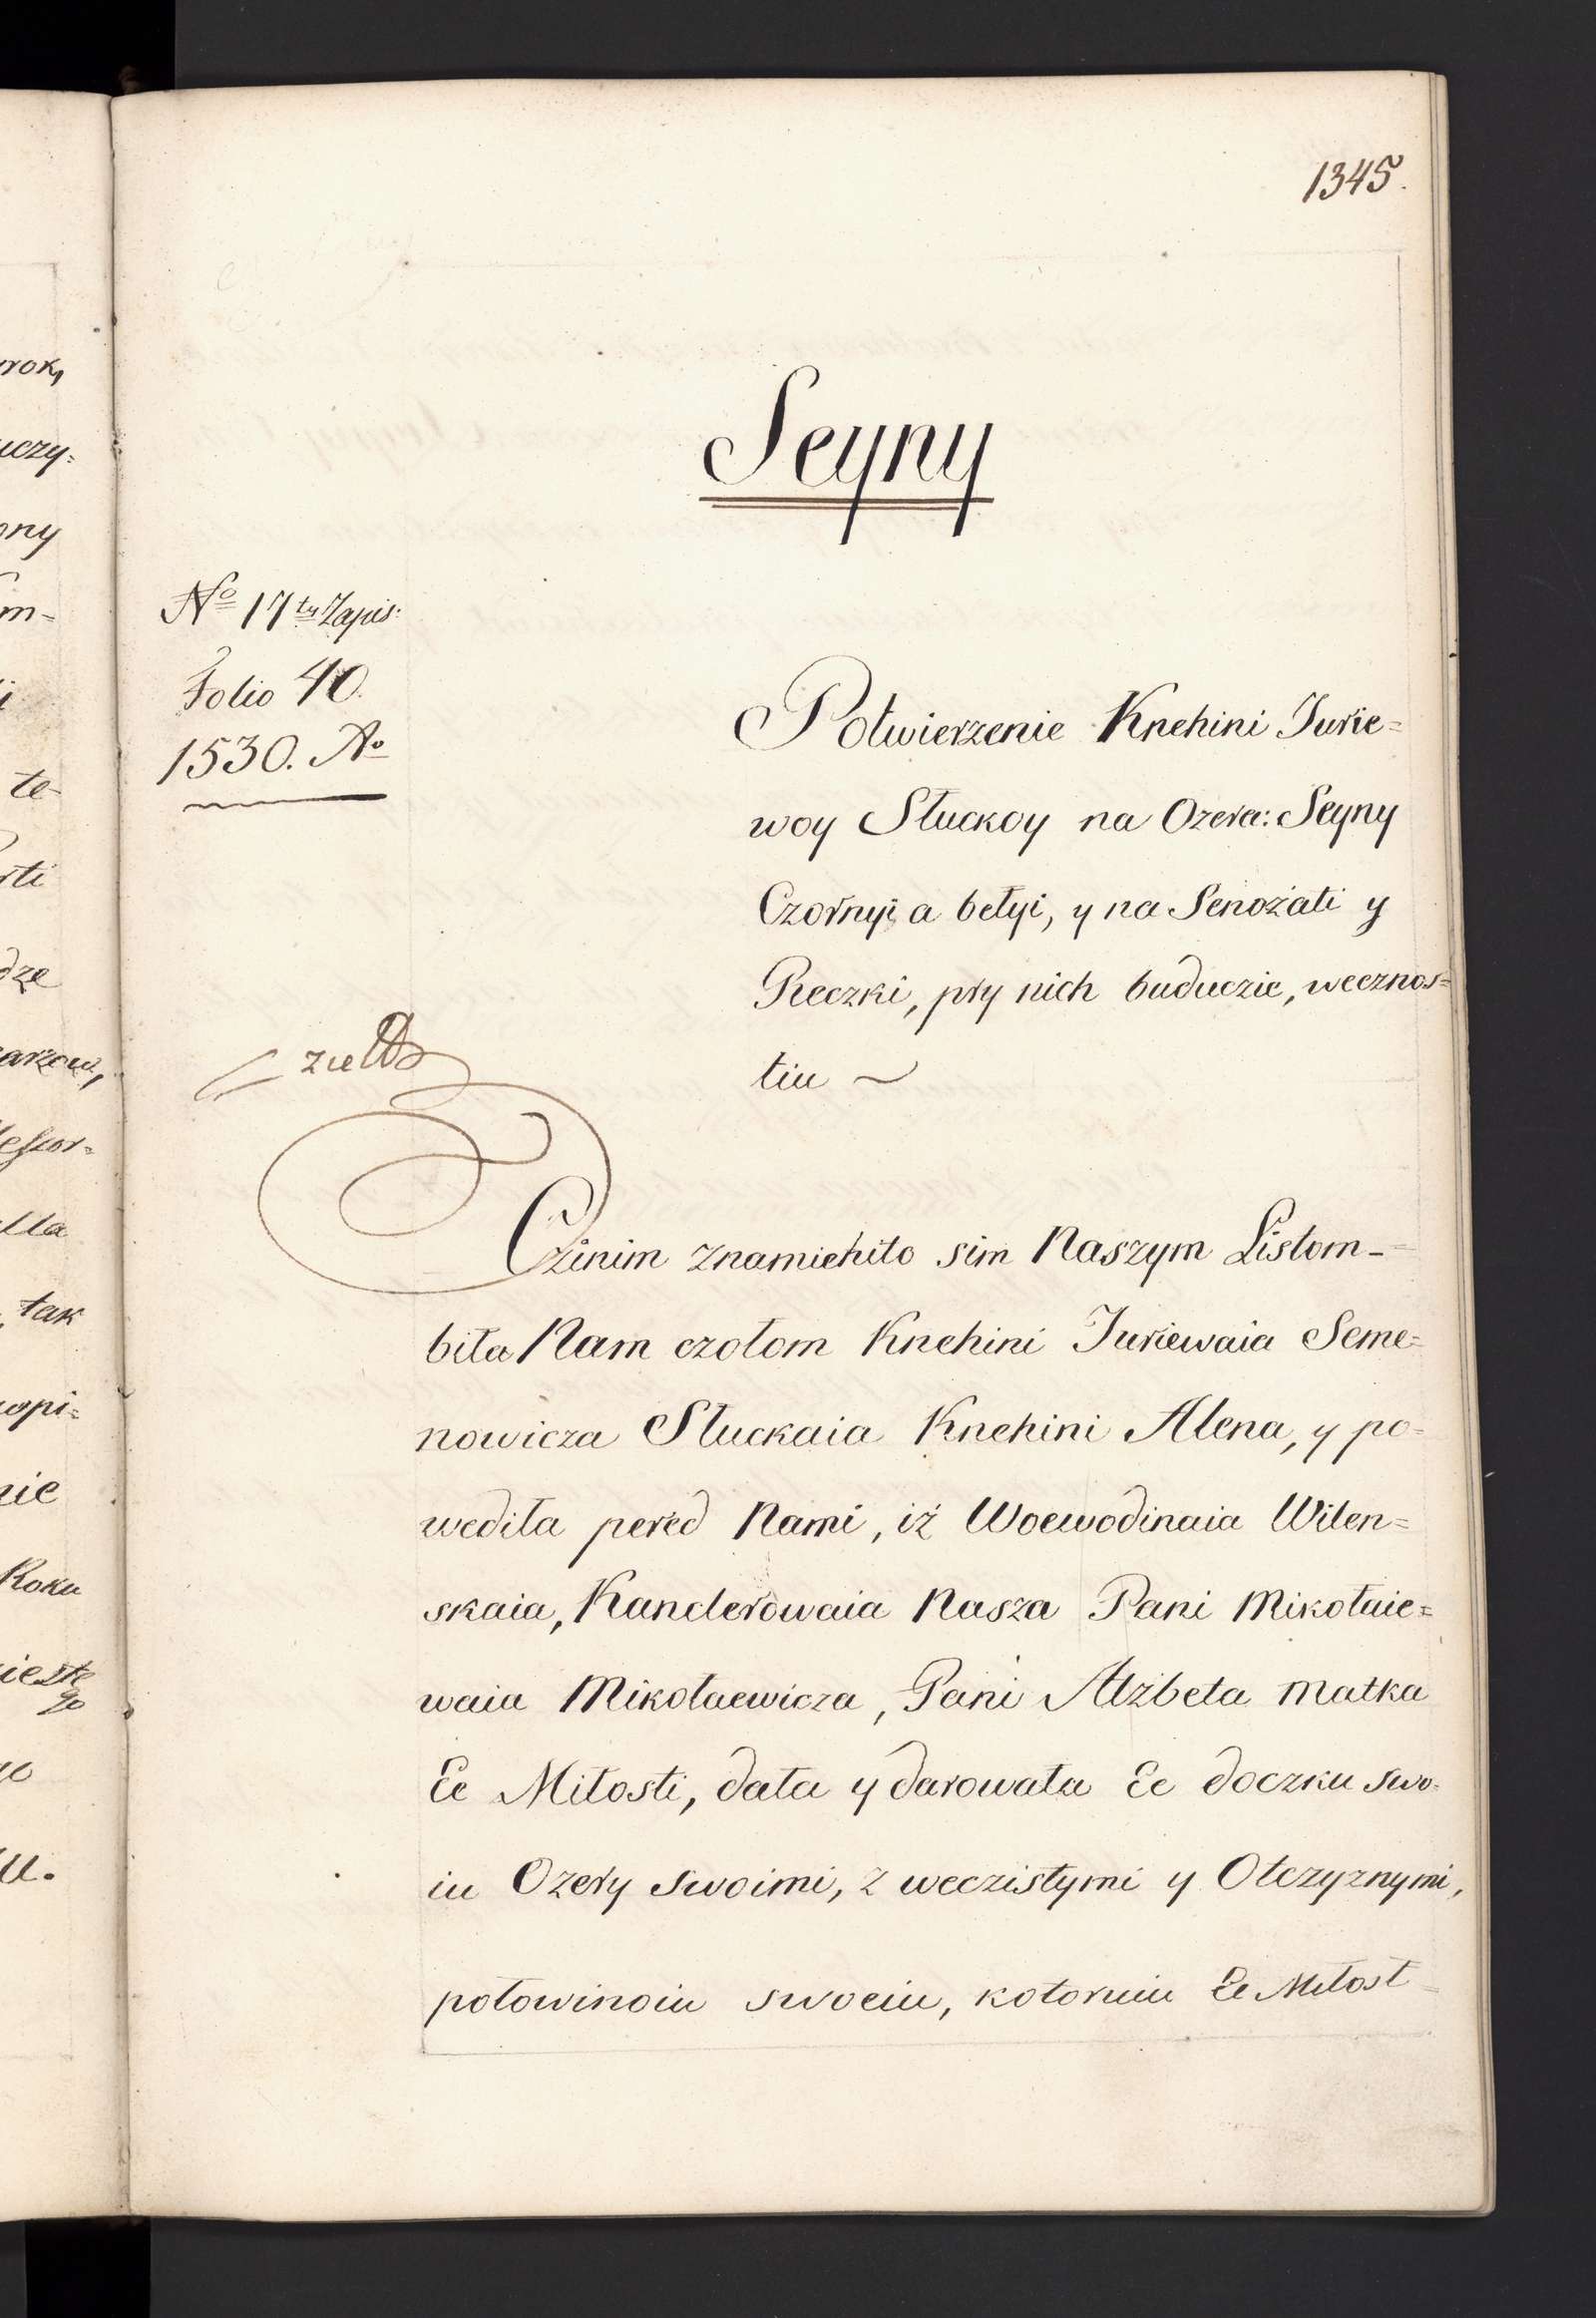 1345.
Seyny
No 17ty Zapis:
Folio 40.
1530. Ao
Potwierzenie Knehini Jurie=
woy Słuckoy na Ozera: Seyny
Czornyi a bełyi, y na Senożati y
Reczki, pry nich buduczie, wecznos=
tiu ~
Czinim znamiehito sim Naszym Listom -
biła Nam czołom Knehini Juriewaia Seme=
nowicza Słuckaia Knehini Alena, y po=
wediła pered Nami, iż Woewodinaia Wilen=
skaia, Kanclerowaia Nasza Pani Mikołaie=
waia Mikołaewicza, Pani Alżbeta Matka
Ee Miłosti, dała y darowała Ee doczku swo=
iu Ozery swoimi, z weczistymi y Otczyznymi,
połowinoiu swoeiu, kotoruiu Ee Miłost
rok,
uczy=
ony
m=
te=
rti
dze
arzow,
lla
tak
opi=
nie
Roku
u.